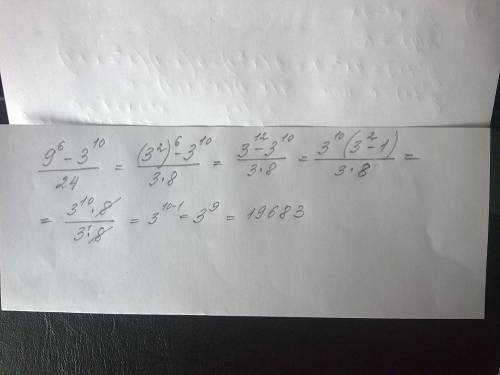 (9^6 - 3^10)/24 = ((3^2)^6 - 3^10)/(3·8) = (3^12 - 3^10)/(3·8) = (3^10(3^2 - 1))/(3·8) =
= (3^10·8)/(3^1·8) = 3^(10-1) = 3^9 = 19683